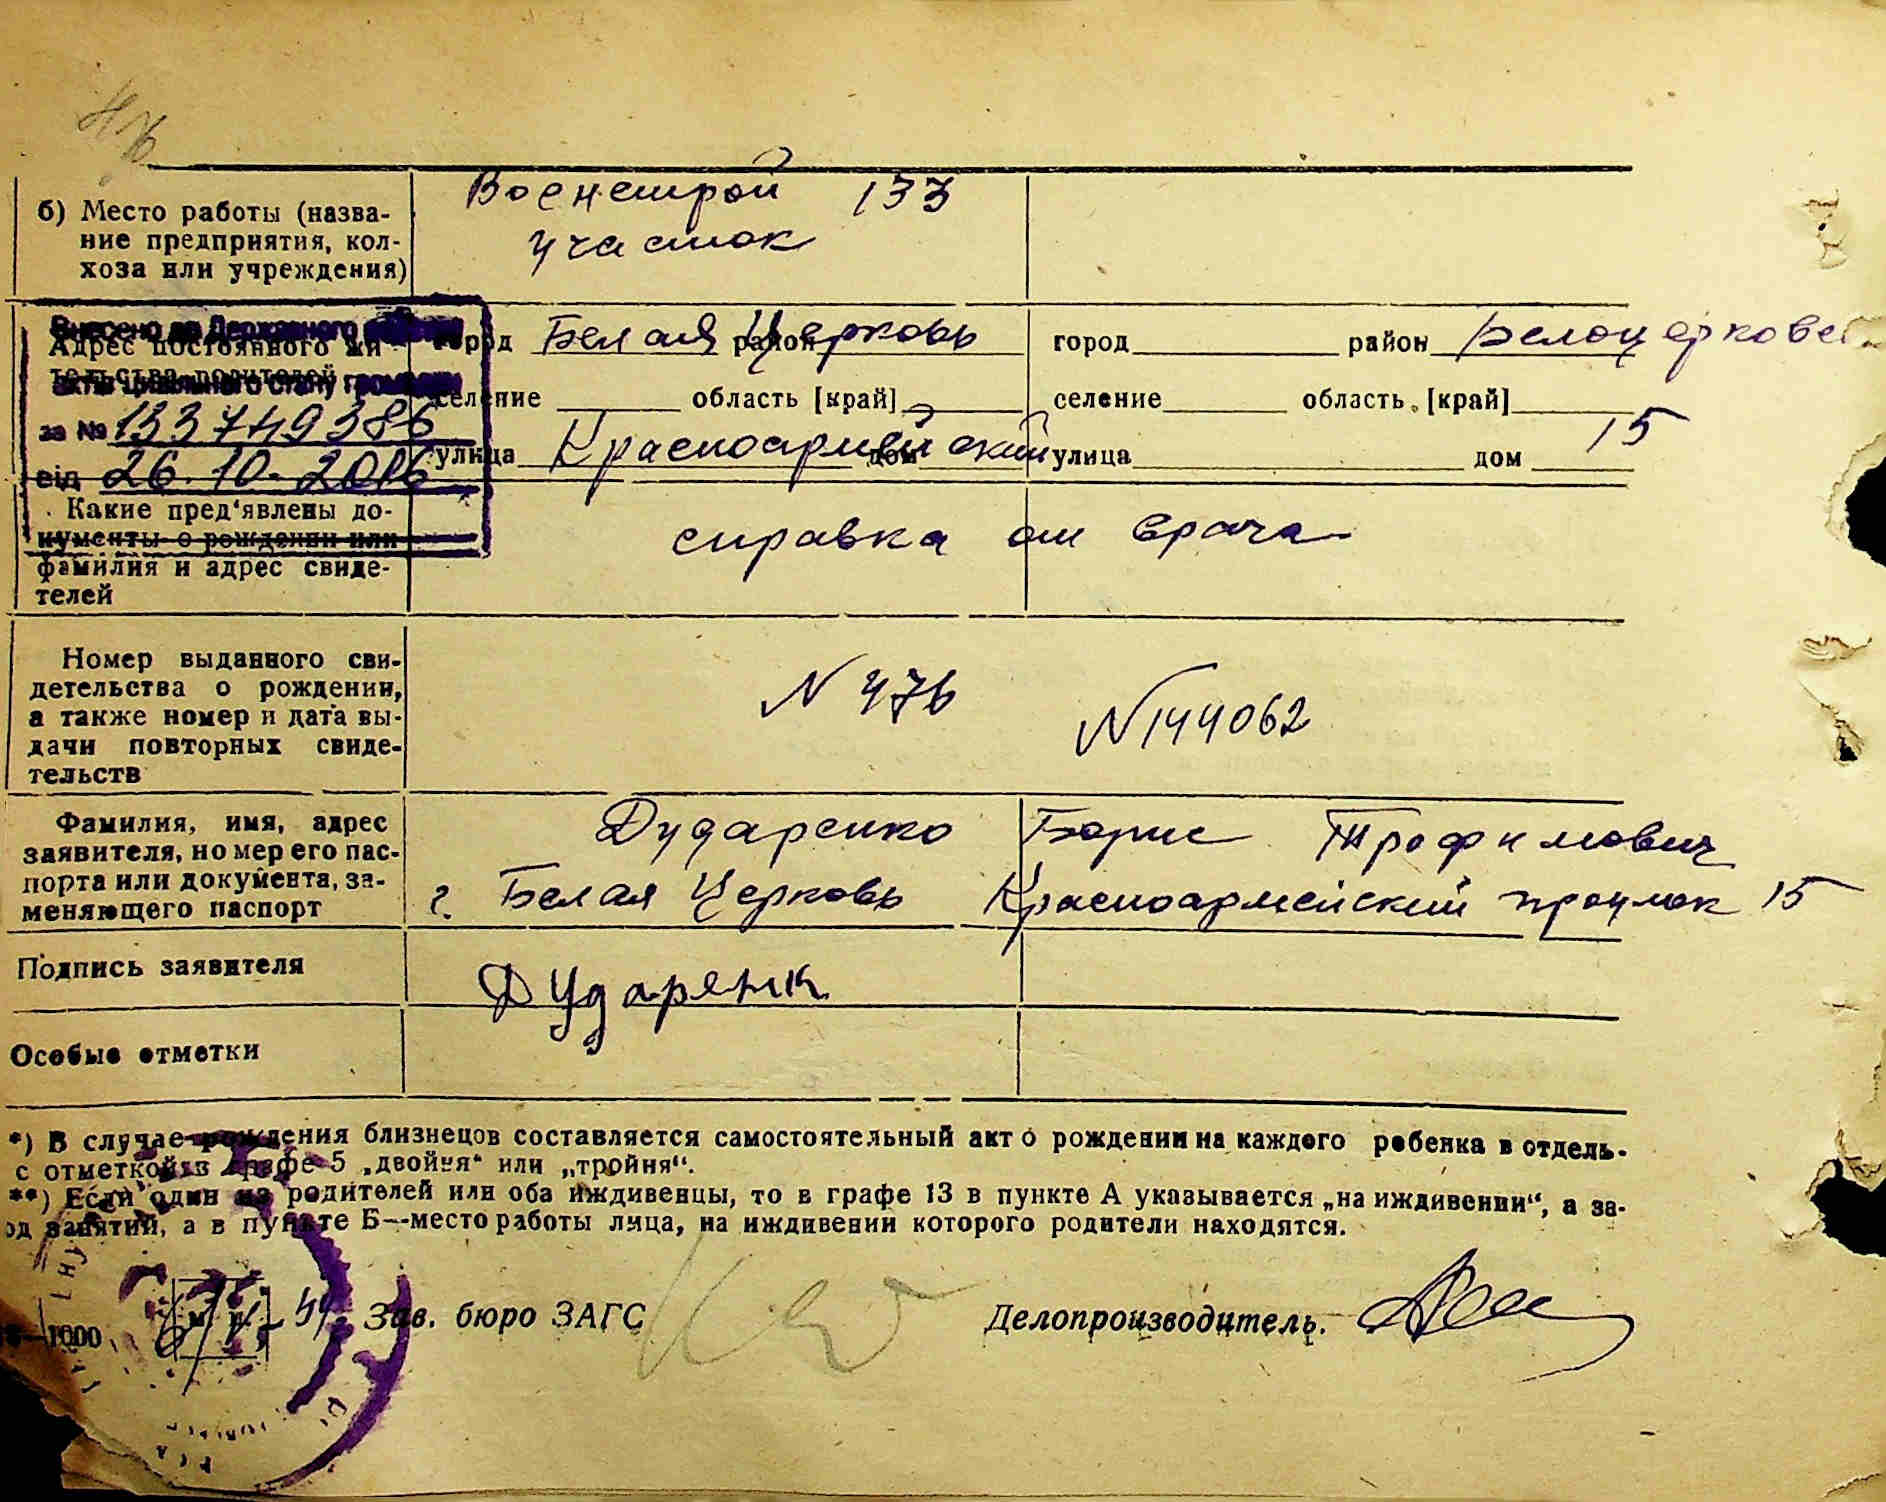 Военстрой 133
участок
б) Место работы (назва-
ние предприятия, кол-
хоза или учреждения)
Внесено до Державного
Адрес постоянного жи
тельства родителей
актів цивільного стану громадян
за № 133749386
від 26.10.2016
город Белая Церковь район
селение область [край]
улица Красноармейский дом
город район Белоцерковс
селение область [край]
улица дом 15
Какие пред'явлены до-
кументы о рождении или
фамилия и адрес свиде-
телей
справка от врача
Номер выданного сви-
детельства о рождении,
а также номер и дата вы-
дачи повторных свиде-
тельств
N 476
N 144062
Фамилия, имя, адрес
заявителя, номер его пас-
порта или документа, за-
меняющего паспорт
Дударенко Борис Трофимович
г. Белая Церковь Красноармейский проулок 15
Подпись заявителя
Дударенк
Особые отметки
*) В случае рождения близнецов составляется самостоятельный акт о рождении на каждого ребенка в отдель-
с отметкой в графе 5 „двойня“ или „тройня“.
**) Если один из родителей или оба иждивенцы, то в графе 13 в пункте А указывается „на иждивении“, а за-
од занятий, а в пункте Б—место работы лица, на иждивении которого родители находятся.
М. П.
Зав. бюро ЗАГС
Делопроизводитель.
—1000